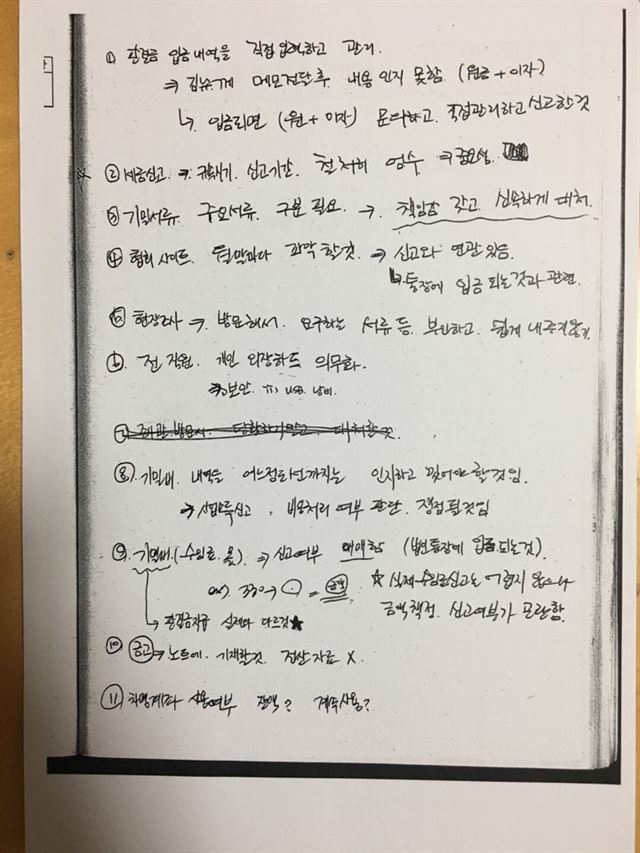 ① 판결금 입금내역을 직접 입력하고 관리.
⇒ 메모전달후 내용 인지 못함 (원금+이자)
↳ 입금되면 (원+이자) 문의하고. 직접관리하고 신고할것
② 세금신고 ⇒ 신고기간. 철저히 엄수 ⇒ 중요성.
③ 기밀서류. 주요서류. 구분 필요. → 책임감 갖고 신속하게 대처.
④ 협회 사이트. 월말마다 파악 할것. ⇒ 신고와 연관 있음.
↳ 통장에 입금 되는것과 관련.
⑤ 현장조사 ⇒ 방문해서. 요구하는 서류 등. 쉽게 내주지않기
⑥ 전 직원. 개인 외장하드 의무화.
⇒ 보안. USB
⑧ 기밀비. 내역을 어느정도 인지하고 있어야 할것임.
⇒ 신고. 비용처리 여부 판단. 쟁점 될것임
⑨ 기밀비 (수임료. 等) ⇒ 신고여부 애매함 (통장에 입금되는것).
ex) 330 → = 금액 ☆ 실제 수임료신고는 어렵지 않으나
→ 판결금지급 실제와 다른것★ 금액 책정. 신고여부가 곤란함.
⑩ 금고 ⇒ 노트에. 기재할것. 전산자료 X.
⑪ 차명계좌 사용여부 잔액? 계속사용?